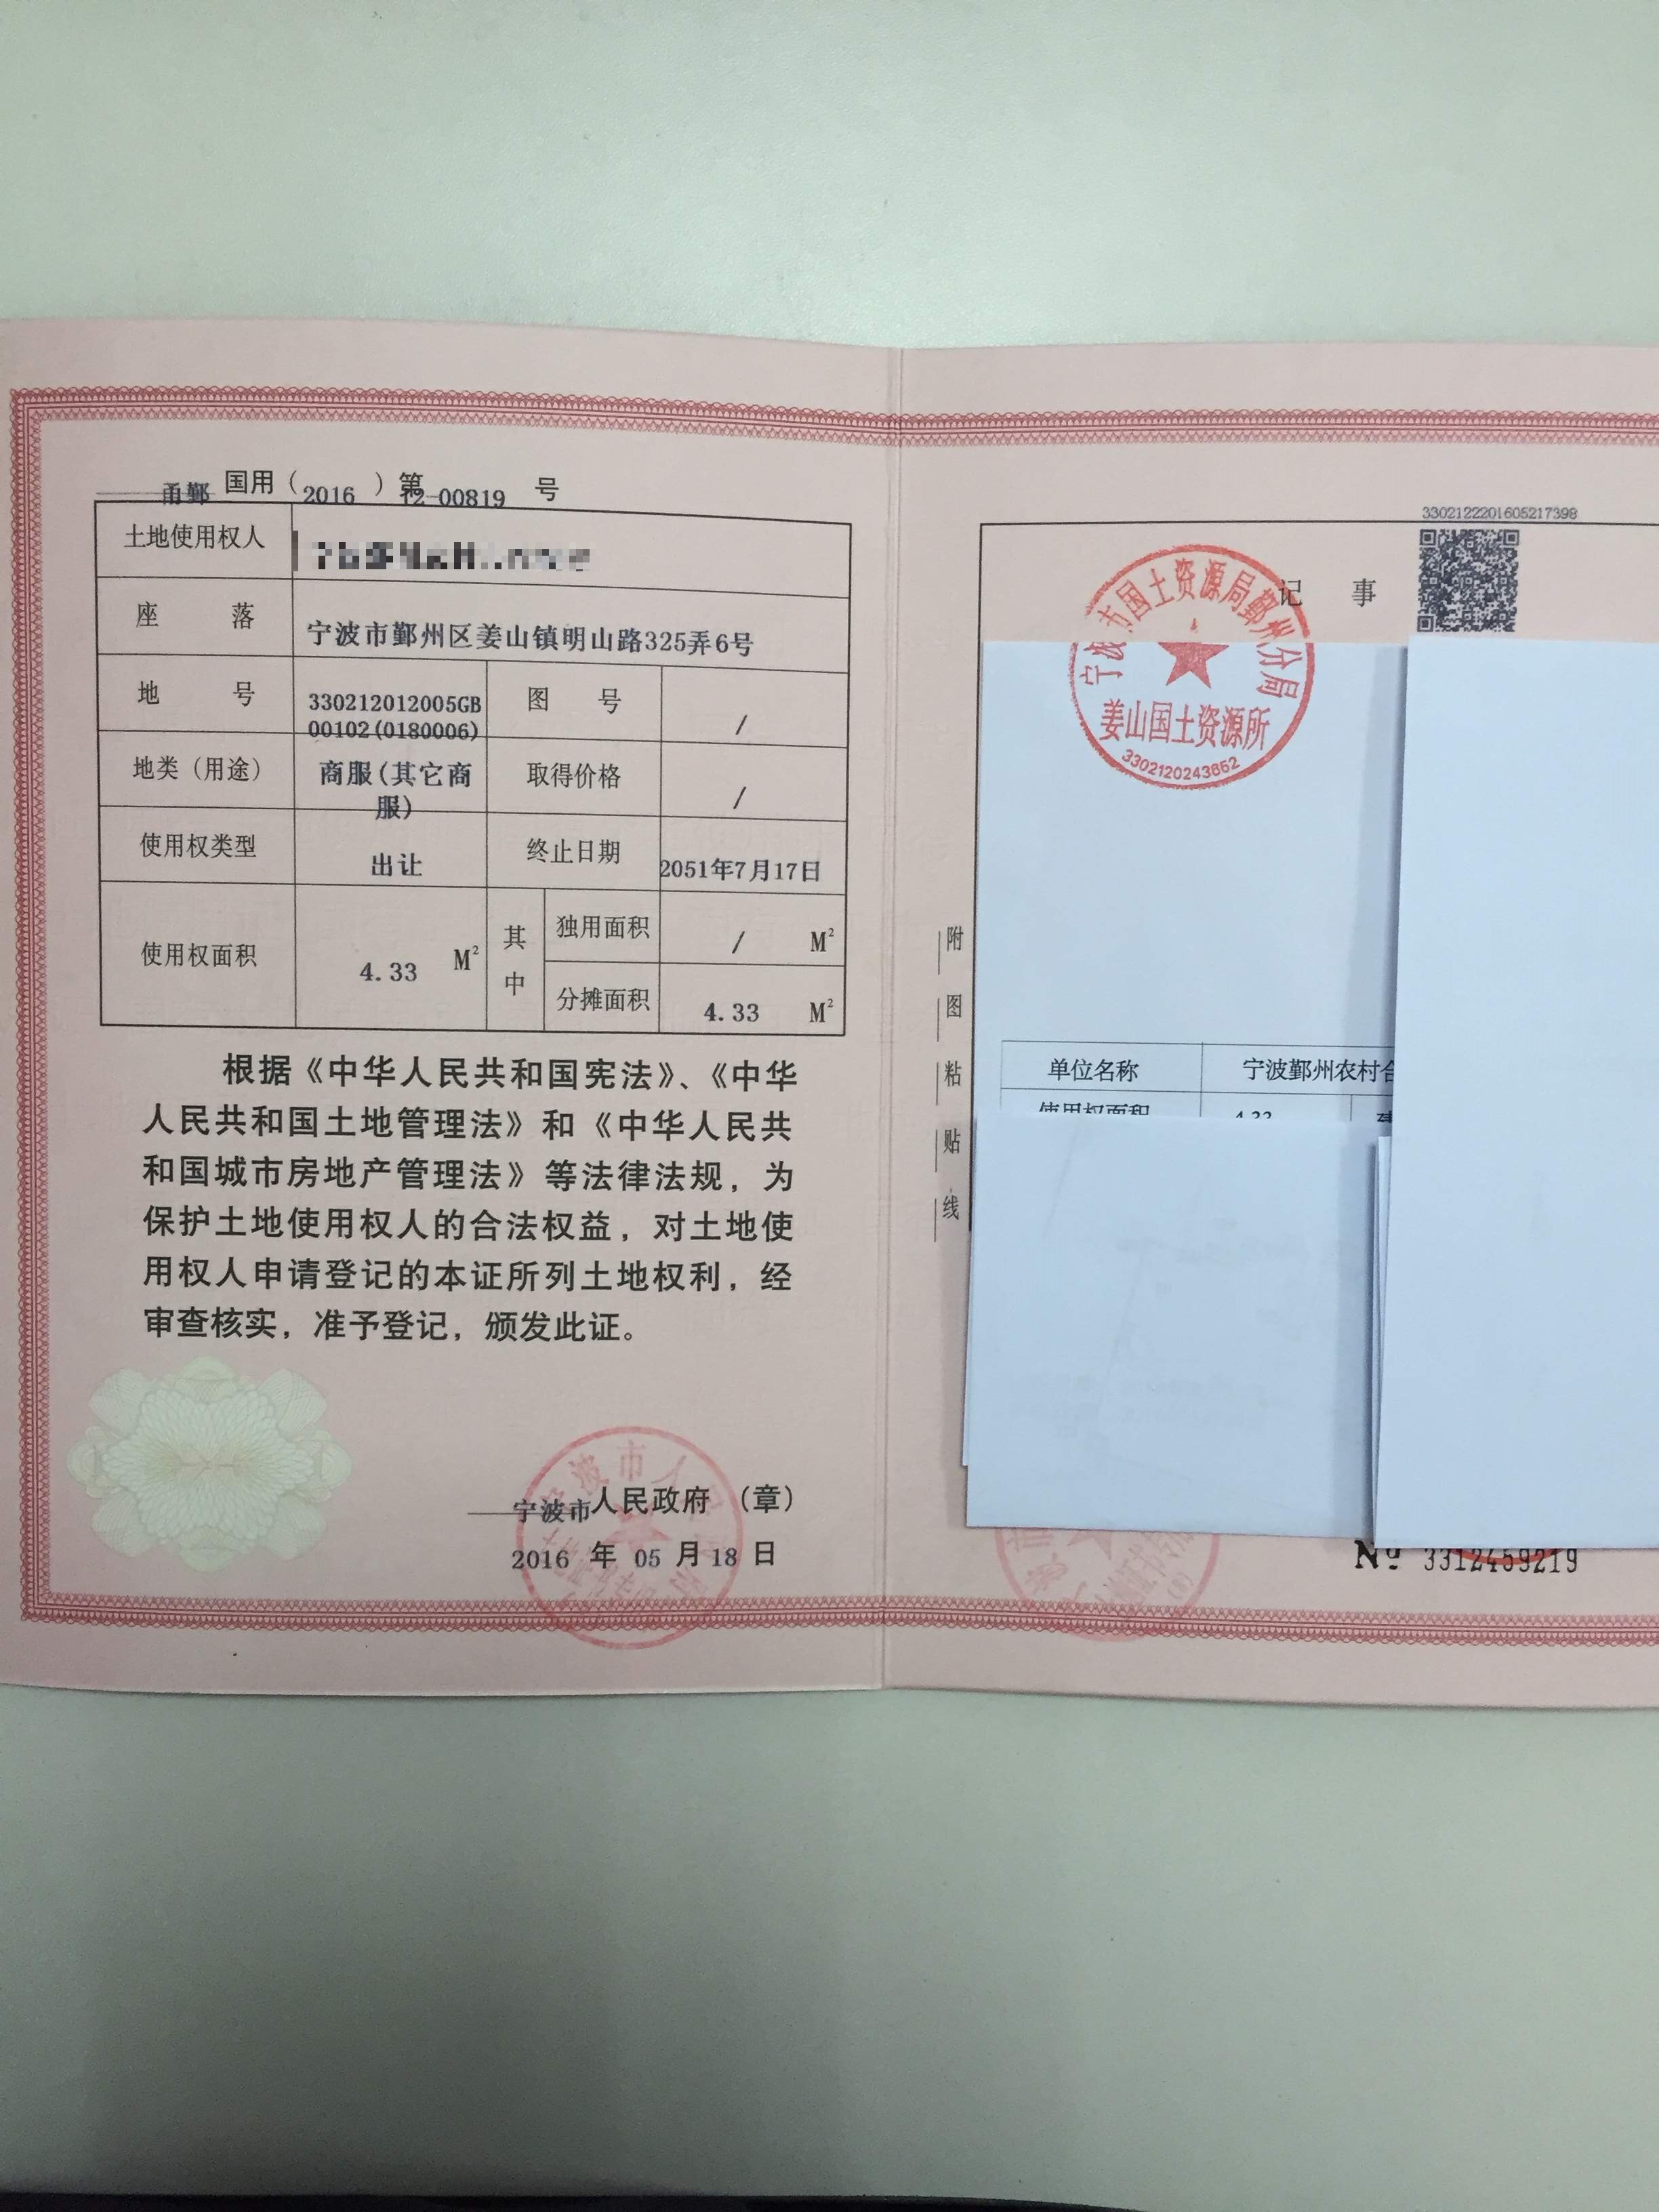 甬鄞 国用（2016）第 12-00819 号
土地使用权人
座落 宁波市鄞州区姜山镇明山路325弄6号
地号 330212012005GB 图号 /
00102(0180006)
地类（用途） 商服(其它商 取得价格 /
服)
使用权类型 出让 终止日期 2051年7月17日
使用权面积 4.33 M² 其中 独用面积 / M²
分摊面积 4.33 M²
根据《中华人民共和国宪法》、《中华
人民共和国土地管理法》和《中华人民共
和国城市房地产管理法》等法律法规，为
保护土地使用权人的合法权益，对土地使
用权人申请登记的本证所列土地权利，经
审查核实，准予登记，颁发此证。
宁波市人民政府（章）
2016 年 05 月 18 日
3302122201605217398
记事
宁波市国土资源局鄞州分局
姜山国土资源所
3302120243652
附图粘贴线
单位名称 宁波鄞州农村合
使用权面积 4.33
№ 3312459219